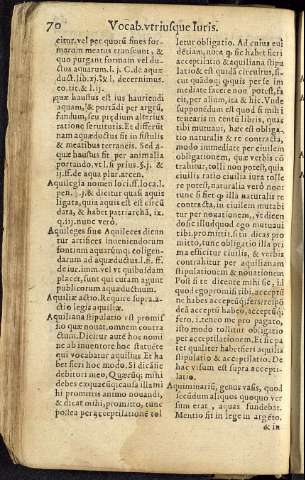 70 Vocab. vtriusque Iuris.
eitur. vel per quorũ fines for-
marum meatus transeunt, &
quo purgant formam vel du-
ctus aquarum. l. j. C. de aquæ
duct. lib. xj. & l. decernimus.
eo. tic. lib. xj.
quæ haustus est ius hauriendi
aquam, & portãdi per argũ
fundum, seu prędium alterius
ratione seruitutis. Et differt
nam aquæductus fit in fistulis
& meatibus terraneis. Sed a-
quæ haustus fit per animalia
portando.
ff. de aqua plur. arcen.
Aquilegia nomen loci
dicitur quasi aquis
ligata, quia aquis est est circũ
data, & habet patriarchã, ix.
q. iij. nunc verò.
Aquileges siue Aquileces dicun
tur artifices inteniendorum
fontium aquarumq; colligen-
darum ad aquæductus. l. ff.
de iur. imm. vel vt quibusdam
placet, sunt qui curam agunt
publicorum aquæductuum.
Aquiliæ actio. Require supra. a-
ctio legis aquiliæ.
Aquiliana stipulatio est promis
sio quæ nouat, omnem contra
ctum. Dicitur autẽ hoc nomi
ne ab inuentore hoc statuẽte
qui vocabatur aquilius. Et ha
bet fieri hoc modo. Si dicã tibi
debitori meo, Quæcũq; mihi
debes exquacũq; causa illa mi
hi promittis animo nouandi,
& dicat mihi, promitto, tunc
postea per acceptilationẽ tol
letur obligatio. Ad cuius eui
dẽtiam, nota q̃ sic habet fieri
acceptilatio & aquiliana stipu
latio & est quædã circuitus, si-
ue quædam, q; quis per se im
mediate facere non potest, fa
cit, per alium, ita & hic. Vnde
supponẽdum est quod si mihi
teneatis in centum libris, quas
tibi mutuaui, hæc est obliga-
tio naturalis & re contracta,
modo immediate per ciuilem
obligationem, quæ verbis cõ
trahitur, tolli non potest, quia
ciuilis ratio ciuilia iura tolle
re potest, naturalia verò non
tunc q̃ fiet q; illa naturalis re
contracta, in ciuilem mutabi
tur per nouationem, vt dicen
do sic illud quod ego mutuaui
tibi, promittis, si tu dicas pro
mitto, tunc obligatio illa pri
ma efficitur ciuilis, & verbis
contrahitur per aquilianam
stipulationem & nouationem
Post si tu dicente mihi sic, id
quod ego promisi tibi, acceptũ
ne habes
dẽ acceptũ habeo, acceptũq;
fero. Lacuno me pro pagato,
isto modo tollitur obligatio
per acceptilationem, & sic pa
tet qualiter habet fieri aquilia
stipulatio & acceptilatio. De
hac visum est supra accepti-
latio.
Aquiminariũ, genus vasis, quod
secũdum aliquos quoquo ver
sum erat, aquas fundebat.
Mentio fit in lege in argẽto.
& in